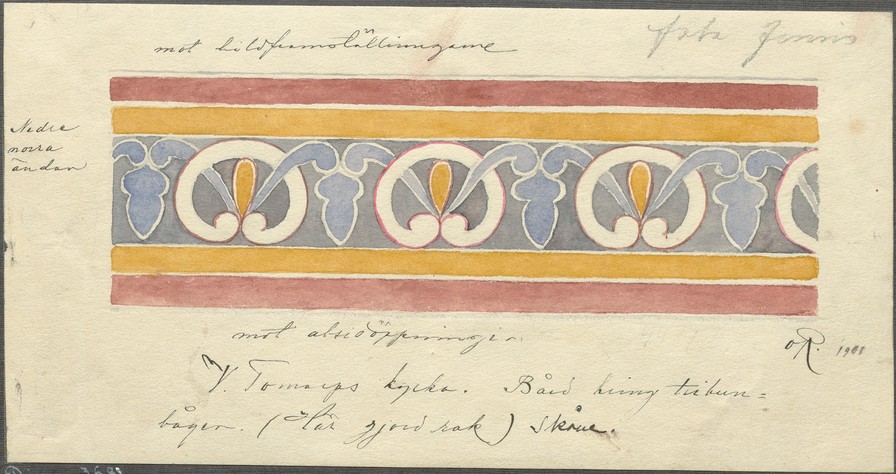 mot bildframställningarne
foto finnis
Nedre
norra
ändan
mot absidöppningen
oR. 1901
V. Tomarps kyrka. Bård kring tribun=
bågen. (Här gjord rak) Skåne.